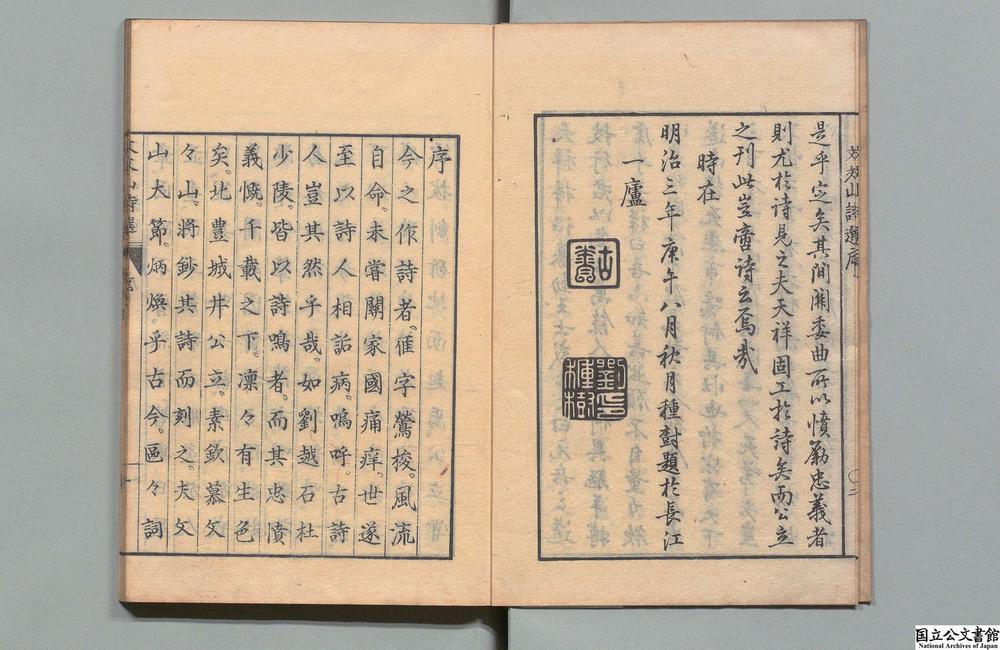 文文山詩選序
〇二
是乎定矣其間關委曲所以憤勵忠義者
則尤於詩見之夫天祥固工於詩矣而公立
之刊此豈啻詩云焉哉
時在
明治三年庚午八月秋月種樹題於長江
一廬
古香
劉印
種樹
序
今之作詩者。雀字鶯梭。風流
自命。未嘗關家國痛痒。世遂
至以詩人相詬病。嗚呼。古詩
人豈其然乎哉。如劉越石杜
少陵。皆以詩鳴者。而其忠憤
義慨。千載之下。凛々有生色
矣。北豊城井公立。素欽慕文
々山。將鈔其詩而刻之。夫文
山大節。炳煥乎古今。區々詞
文文山詩選
序
一
国立公文書館
National Archives of Japan